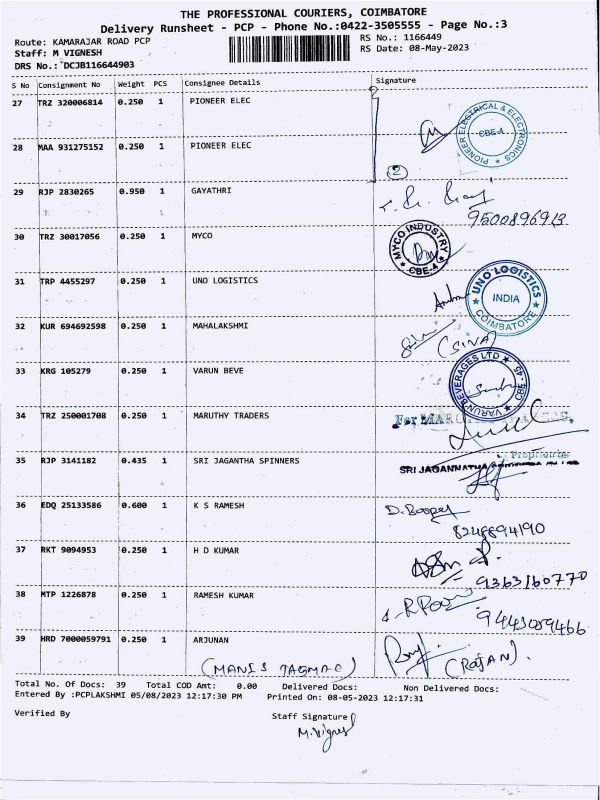 THE PROFESSIONAL COURIERS, COIMBATORE
Delivery Runsheet - PCP - Phone No.:0422-3505555 - Page No.:3
Route: KAMARAJAR ROAD PCP
RS No.: 1166449
Staff: M VIGNESH
RS Date: 08-May-2023
DRS No.: DCJB116644903
S No Consignment No Weight PCS Consignee Details Signature
27 TRZ 320006814 0.250 1 PIONEER ELEC
PIONEER ELECTRICAL & ELECTRONICS
CBE-4
28 MAA 931275152 0.250 1 PIONEER ELEC
2
29 RJP 2830265 0.950 1 GAYATHRI
9500896913
30 TRZ 30017056 0.250 1 MYCO
MYCO INDUSTRY
CBE-4
31 TRP 4455297 0.250 1 UNO LOGISTICS
UNO LOGISTICS
INDIA
COIMBATORE
32 KUR 694692598 0.250 1 MAHALAKSHMI
(SIVA)
33 KRG 105279 0.250 1 VARUN BEVE
VARUN BEVERAGES LTD
CBE-45
34 TRZ 250001708 0.250 1 MARUTHY TRADERS
For
35 RJP 3141182 0.435 1 SRI JAGANTHA SPINNERS
SRI JAGANNATHA
36 EDQ 25133586 0.600 1 K S RAMESH
8248894190
37 RKT 9094953 0.250 1 H D KUMAR
9363160770
38 MTP 1226878 0.250 1 RAMESH KUMAR
9443089466
39 HRD 7000059791 0.250 1 ARJUNAN
(RAJAN).
Total No. Of Docs: 39 Total COD Amt: 0.00 Delivered Docs: Non Delivered Docs:
Entered By :PCPLAKSHMI 05/08/2023 12:17:30 PM Printed On: 08-05-2023 12:17:31
Verified By
Staff Signature
M.Vignesh